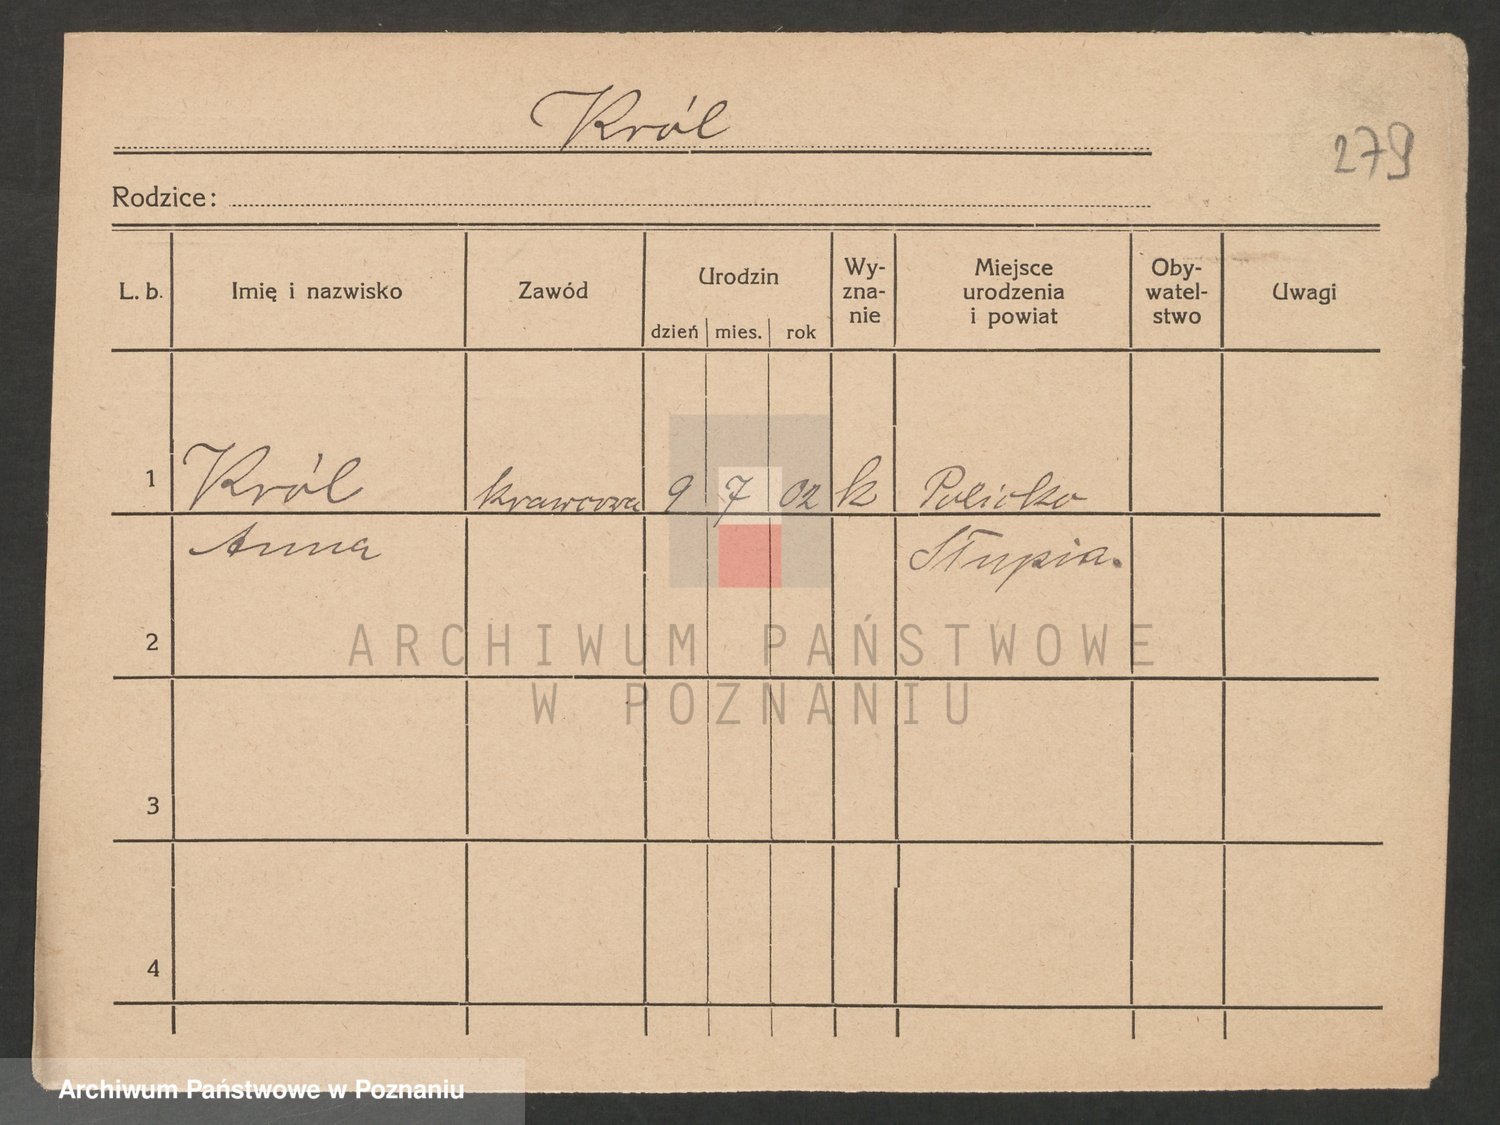 Król
279
Rodzice:
L. b.
Imię i nazwisko
Zawód
Urodzin
dzień
mies.
rok
Wy-
zna-
nie
Miejsce
urodzenia
i powiat
Oby-
watel-
stwo
Uwagi
1
Król
krawcowa
9
7
02
k
Anna
Słupia.
2
3
4
ARCHIWUM PAŃSTWOWE
W POZNANIU
Archiwum Państwowe w Poznaniu